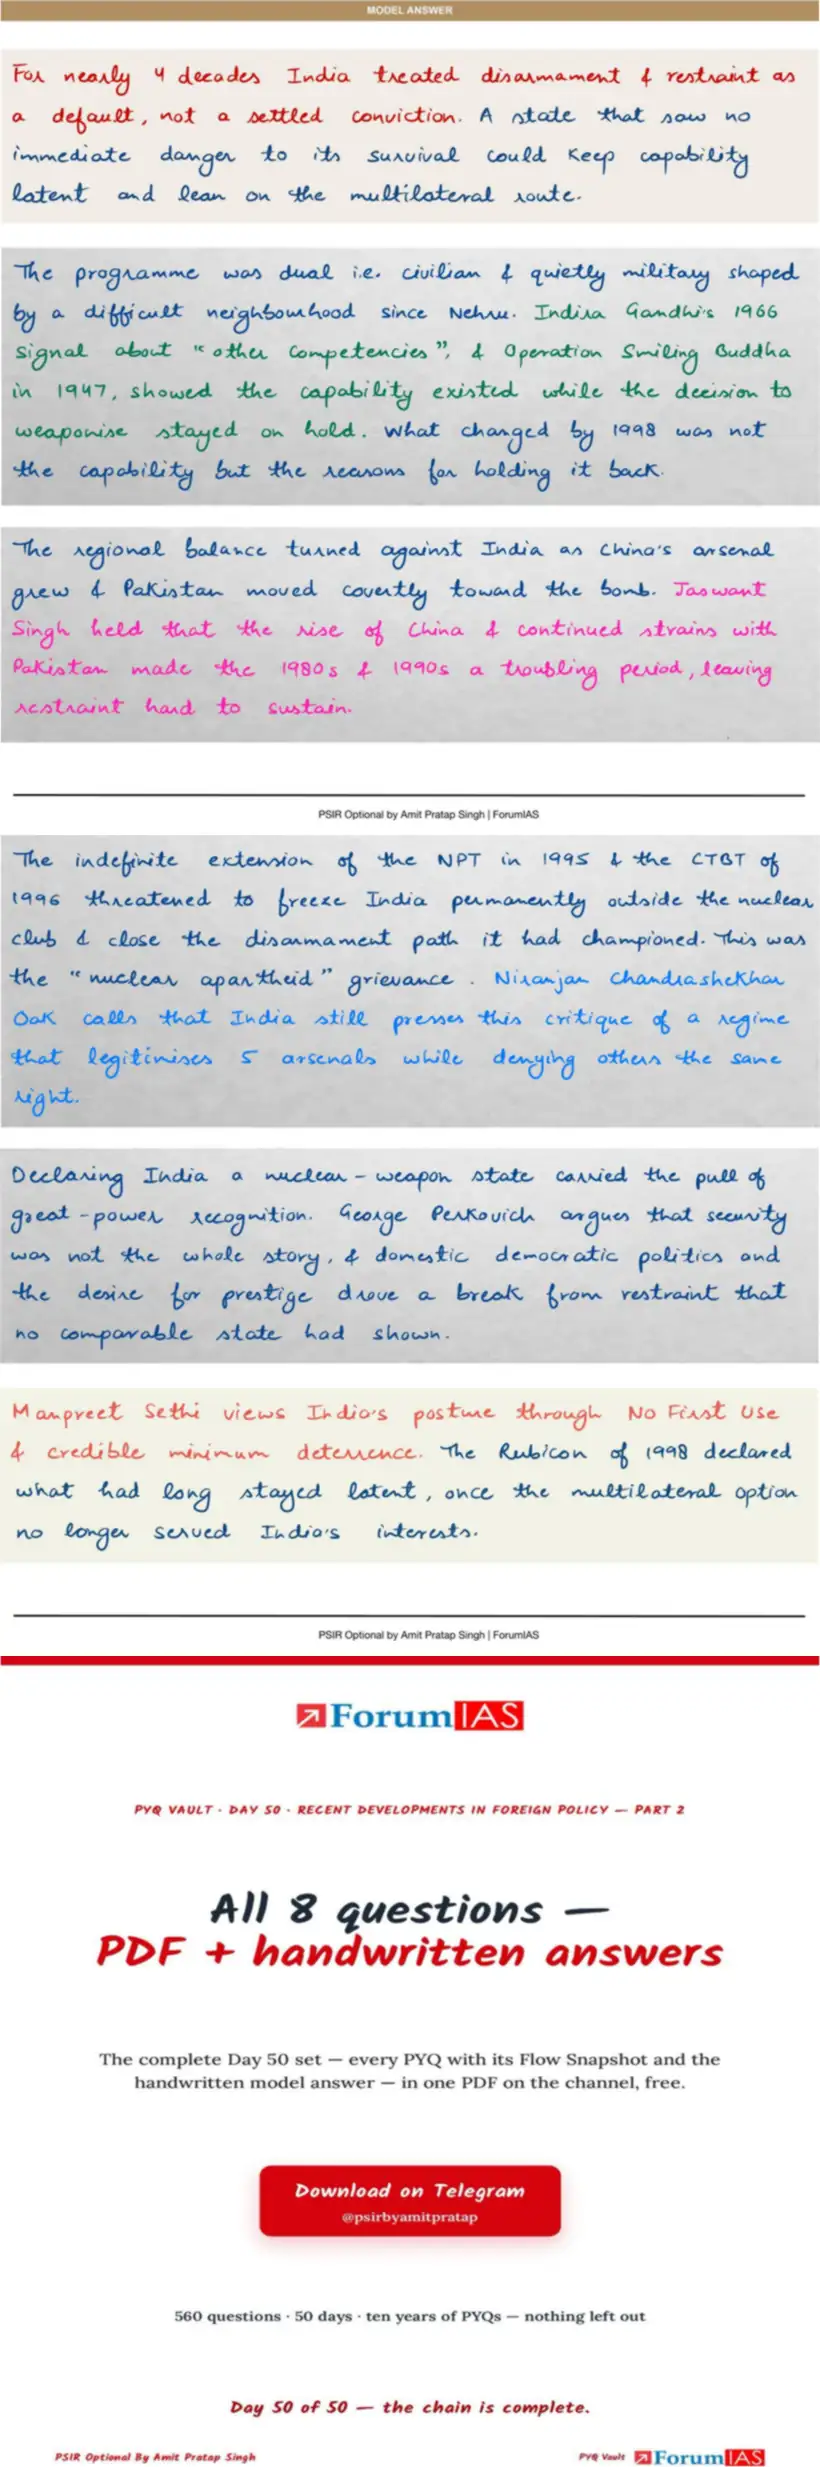 MODEL ANSWER
For nearly 4 decades India treated disarmament & restraint as
a default, not a settled conviction. A state that saw no
immediate danger to its survival could keep capability
latent and lean on the multilateral route.
The programme was dual i.e. civilian & quietly military shaped
by a difficult neighbourhood since Nehru. Indira Gandhi's 1966
signal about "other competencies", & Operation Smiling Buddha
in 1947, showed the capability existed while the decision to
weaponise stayed on hold. What changed by 1998 was not
the capability but the reasons for holding it back.
The regional balance turned against India as China's arsenal
grew & Pakistan moved covertly toward the bomb. Jaswant
Singh held that the rise of China & continued strains with
Pakistan made the 1980s & 1990s a troubling period, leaving
restraint hard to sustain.
PSIR Optional by Amit Pratap Singh | ForumIAS
The indefinite extension of the NPT in 1995 & the CTBT of
1996 threatened to freeze India permanently outside the nuclear
club & close the disarmament path it had championed. This was
the "nuclear apartheid" grievance. Niranjan Chandrashekhar
Oak calls that India still presses this critique of a regime
that legitimises 5 arsenals while denying others the same
right.
Declaring India a nuclear-weapon state carried the pull of
great-power recognition. George Perkovich argues that security
was not the whole story, & domestic democratic politics and
the desire for prestige drove a break from restraint that
no comparable state had shown.
Manpreet Sethi views India's posture through No First Use
& credible minimum deterrence. The Rubicon of 1998 declared
what had long stayed latent, once the multilateral option
no longer served India's interests.
PSIR Optional by Amit Pratap Singh | ForumIAS
ForumIAS
PYQ VAULT · DAY 50 · RECENT DEVELOPMENTS IN FOREIGN POLICY — PART 2
All 8 questions —
PDF + handwritten answers
The complete Day 50 set — every PYQ with its Flow Snapshot and the
handwritten model answer — in one PDF on the channel, free.
Download on Telegram
@psirbyamitpratap
560 questions · 50 days · ten years of PYQs — nothing left out
Day 50 of 50 — the chain is complete.
PSIR Optional By Amit Pratap Singh
PYQ Vault ForumIAS